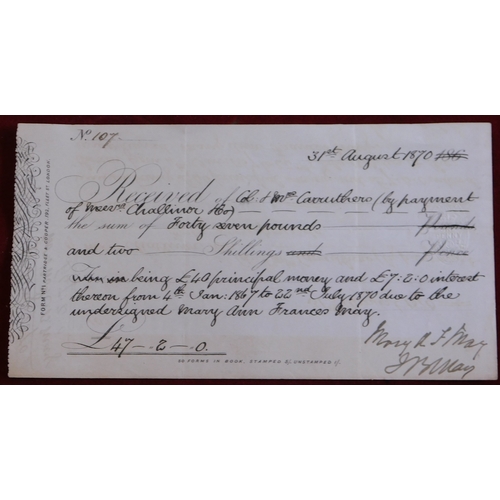 No. 107
31st August 1870 186
Received of Col. & Mrs Carruthers (by payment
of Messrs Challinor & Co)
the sum of Forty seven pounds Pounds
and two Shillings and Pence
being £40 principal money and £7-2-0 interest
thereon from 4th Jan: 1867 to 22nd July 1870 due to the
undersigned Mary Ann Frances May.
£47-2-0.
Mary A F May
50 FORMS IN BOOK, STAMPED UNSTAMPED
FORM No. PARTRIDGE & COOPER, 192, FLEET ST. LONDON.